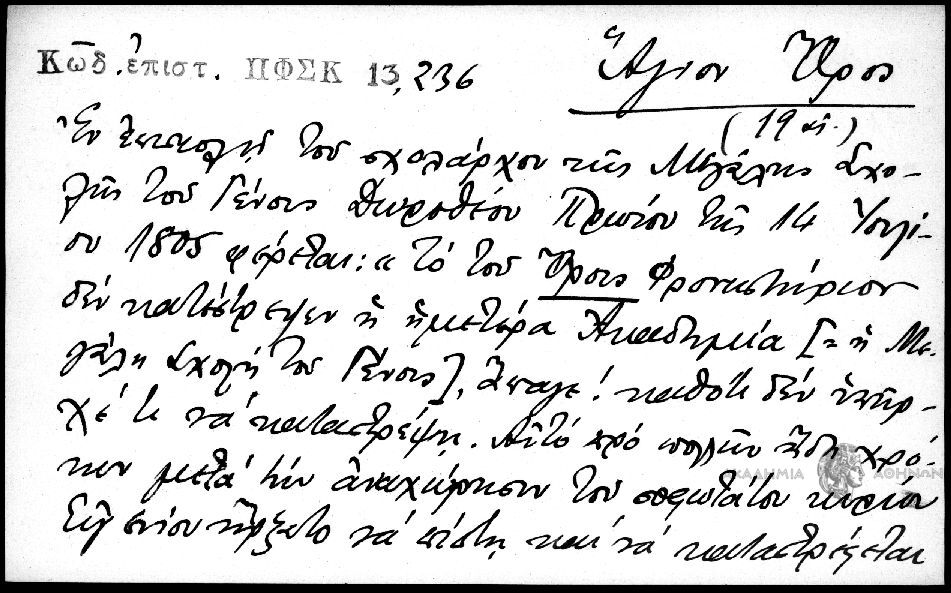 Κῶδ. ἐπιστ. ΠΦΣΚ 13, 236
Ἅγιον Ὄρος
(19 αἰ.)
Ἐν ἐπιστολῇ τοῦ σχολάρχου τῆς Μεγάλης Σχο-
λῆς τοῦ Γένους Δωροθέου Πρωίου τῆς 14 Ἰουλί-
ου 1805 φέρεται: « Τὸ τοῦ Ὄρους Φροντιστήριον
δὲν κατέστρεψεν ἡ ἡμετέρα Ἀκαδημία [= ἡ Με-
γάλη Σχολὴ τοῦ Γένους], ἄπαγε! καθότι δὲν ὑπῆρ-
χέ τι νὰ καταστρέψῃ. Αὐτὸ πρὸ πολλῶν ἤδη χρό-
νων μετὰ τὴν ἀναχώρησιν τοῦ σοφωτάτου κυρίου
Εὐγενίου ἤρξατο νὰ πίπτῃ καὶ νὰ καταστρέφεται
ΑΚΑΔΗΜΙΑ ΑΘΗΝΩΝ